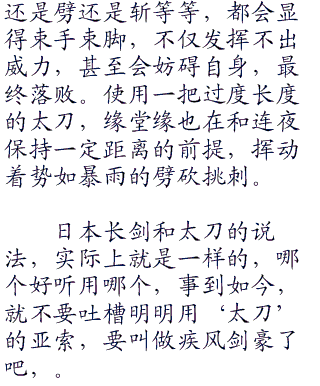 还是劈还是斩等等，都会显
得束手束脚，不仅发挥不出
威力，甚至会妨碍自身，最
终落败。使用一把过度长度
的太刀，缘堂缘也在和连夜
保持一定距离的前提，挥动
着势如暴雨的劈砍挑刺。
日本长剑和太刀的说
法，实际上就是一样的，哪
个好听用哪个，事到如今，
就不要吐槽明明用‘太刀’
的亚索，要叫做疾风剑豪了
吧，。